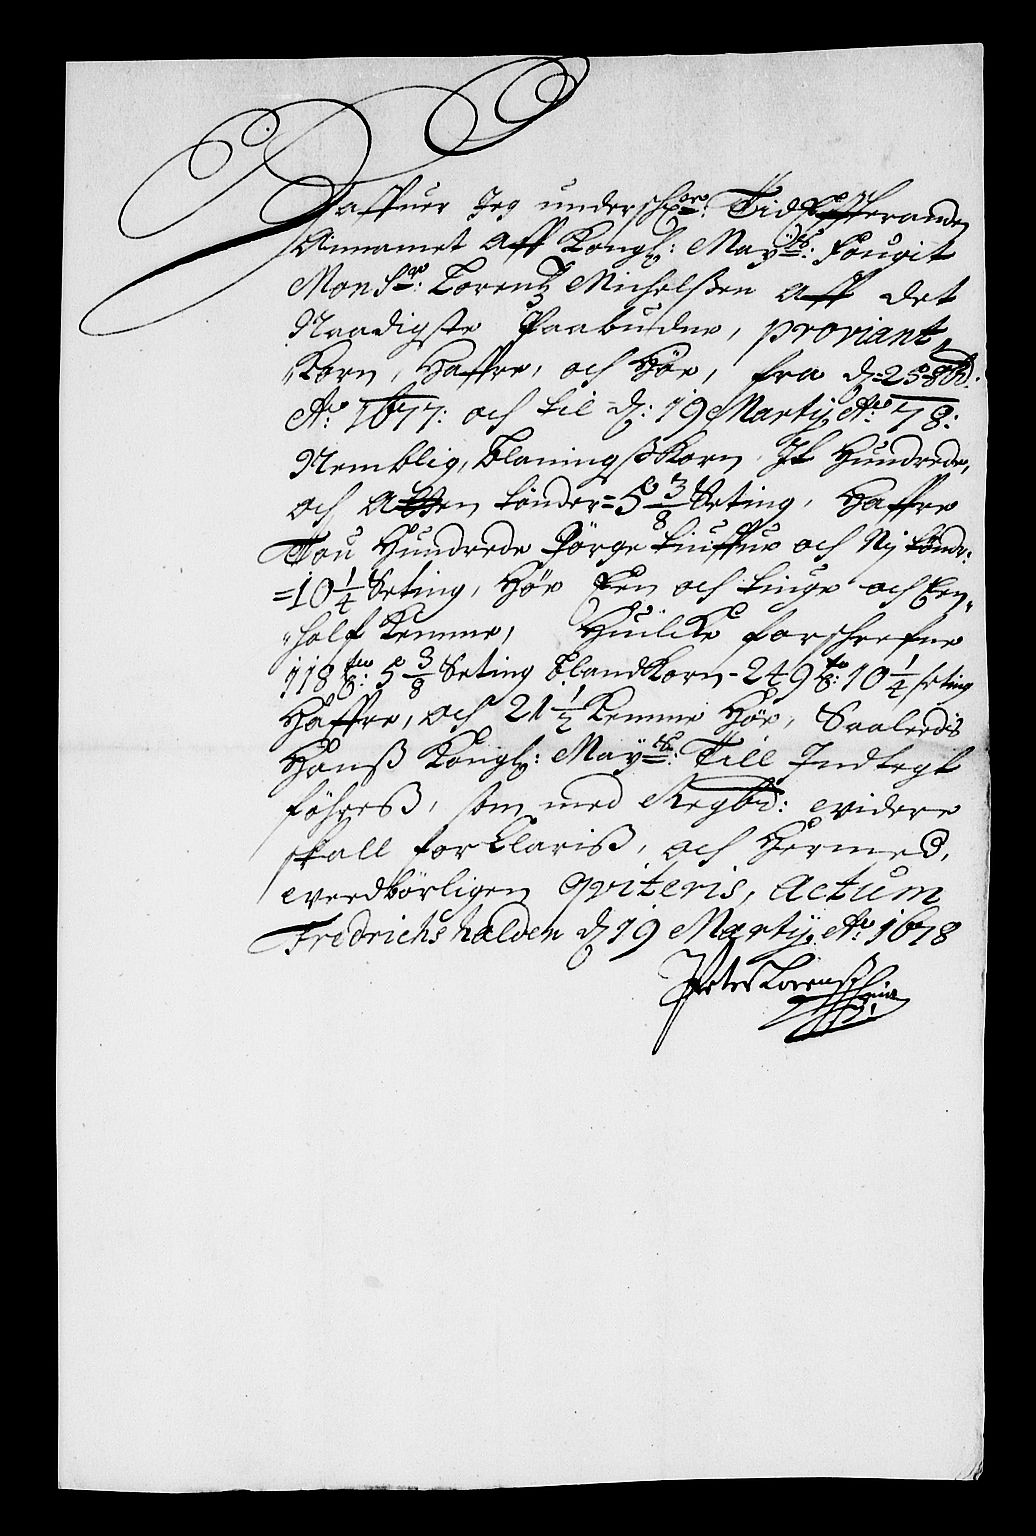 Haffuer Jeg underschr: Tid Effter anden
Annamet Aff Kongl: May: fougit
Mons: Lorentz Michelßen Aff det
Naadigste Paabudne, proviant,
Korn, Haffre, och Høe, fra d: 25 8bd:
Ao: 1677: och til d: 19 Martij Ao: 78:
Nemblig, blaningß Korn Jt Hundrede,
och Atten tønder = 5 3/8 Seting, Haffre
Tou Hundrede Førge tiuffue och Nj tøndr:
= 10 1/4 Seting, Høe Een och tiuge och Een,
half Lemme, Huilcke forschrefne
118 tr: 5 3/8 Seting blandKorn - 249 tr: 10 1/4 seting
Haffre, och 21 1/2 Lemme Høe, Saaleedis
Hanß Kongl: May: Till Jndtegt
føhreß, som med Regbd: widere
skall forklariß, och Hermed,
weedbørligen qviteris, Actum
Fredrichshalden d 19 Martij Ao: 1678
Peter Lorenß